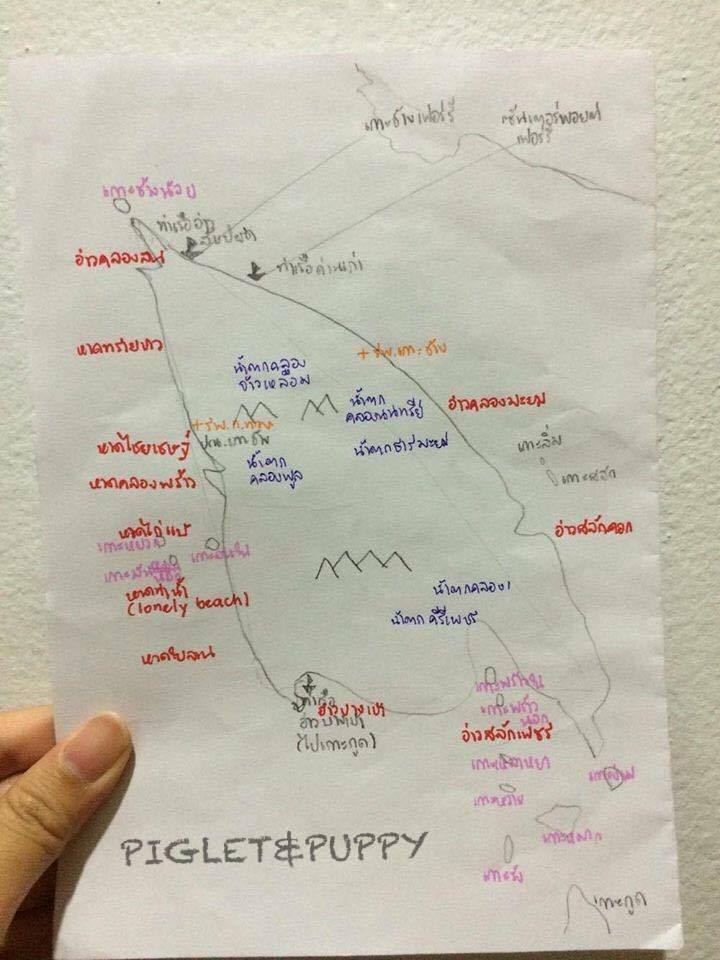 เกาะช้างเฟอร์รี่
เซ็นเตอร์พอยต์
เฟอร์รี่
เกาะช้างน้อย
ท่าเรืออ่าว
สับปะรด
อ่าวคลองสน
ท่าเรือด่านเก่า
หาดทรายขาว
น้ำตกคลอง
ข้าวเหลือม
+ รพ.เกาะช้าง
น้ำตก
คลองนนทรีย์
อ่าวคลองมะยม
น้ำตกธารมะยม
เกาะลิ่ม
หาดไชยเชษฐ์
น้ำตก
คลองพลู
หาดคลองพร้าว
เกาะสลัก
หาดไก่แบ้
อ่าวสลักคอก
เกาะหยวก
เกาะมันใน
เกาะมันนอก
หาดท่าน้ำ
(lonely beach)
น้ำตกคลอง
น้ำตก คีรีเพชร
หาดใบลาน
เกาะพร้าวใน
เกาะพร้าว
นอก
ท่าเรือ
อ่าวบางเบ้า
อ่าวบางเบ้า
(ไปเกาะกูด)
อ่าวสลักเพชร
เกาะเหลายา
เกาะหวาย
เกาะหมาก
เกาะรัง
เกาะกูด
PIGLET&PUPPY